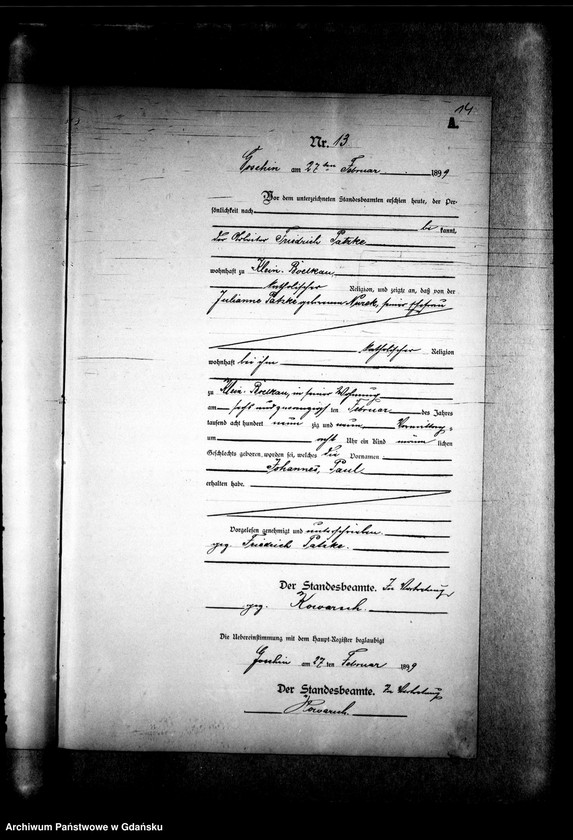 14.
A.
Nr. 13
Goschin am 27ten Februar 1899
Vor dem unterzeichneten Standesbeamten erschien heute, der Per-
sönlichkeit nach
be kannt,
der Arbeiter Friedrich Patzke
wohnhaft zu Klein Boelkau,
katholischer Religion, und zeigte an, daß von der
Julianne Patzke geborenen Nurek, seiner Ehefrau
katholischer Religion
wohnhaft bei ihm
zu Klein Boelkau, in seiner Wohnung
am sechs und zwanzigsten Februar des Jahres
tausend acht hundert neun zig und neun, Vormittags
um acht Uhr ein Kind männ lichen
Geschlechts geboren worden sei, welches die Vornamen
Johannes, Paul
erhalten habe.
Vorgelesen genehmigt und unterschrieben.
gez. Friedrich Patzke.
Der Standesbeamte. In Vertretung
gez. Kowarsch.
Die Uebereinstimmung mit dem Haupt-Register beglaubigt
Goschin am 27 ten Februar 1899
Der Standesbeamte. In Vertretung
Kowarsch.
Archiwum Państwowe w Gdańsku